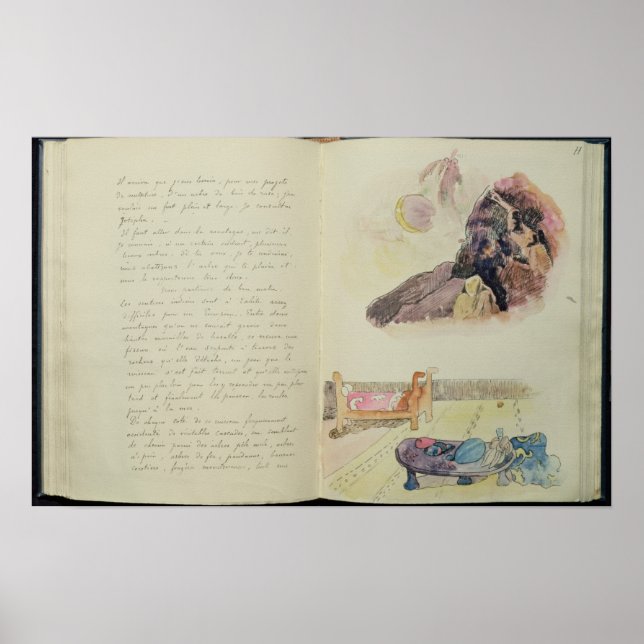 71
Il arriva que j'eus besoin, pour mes projets
de sculpture, d'un arbre de bois de rose; j'en
voulais un fort plein et large. Je consultai
Jotépha. —
Il faut aller dans la montagne, me dit-il.
Je connais, à un certain endroit, plusieurs
beaux arbres. Si tu veux, je te mènerai,
nous abattrons l'arbre qui te plaira et
nous le rapporterons tous deux.
Nous partîmes de bon matin.
Les sentiers indiens sont à Tahiti assez
difficiles pour un Européen. Entre deux
montagnes qu'on ne saurait gravir deux
hautes murailles de basalte, se creuse une
fissure où l'eau serpente à travers des
rochers qu'elle détache, un jour que le
ruisseau s'est fait torrent et qu'elle
un peu plus loin pour les y reprendre un peu plus
tard et finalement les pousser, les rouler
jusqu'à la mer.
De chaque côté de ce ruisseau fréquemment
accidenté de véritables cascades, un semblant
de chemin parmi des arbres pêle mêle, arbres
à pain, arbres de fer, pandanus, bouraos
cocotiers, fougères monstrueuses, tout une